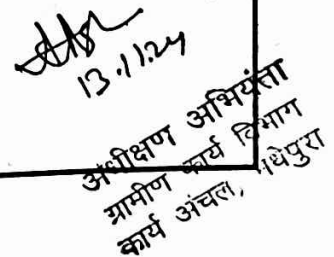 13.11.24
अधीक्षण अभियंता
ग्रामीण कार्य विभाग
कार्य अंचल, मधेपुरा